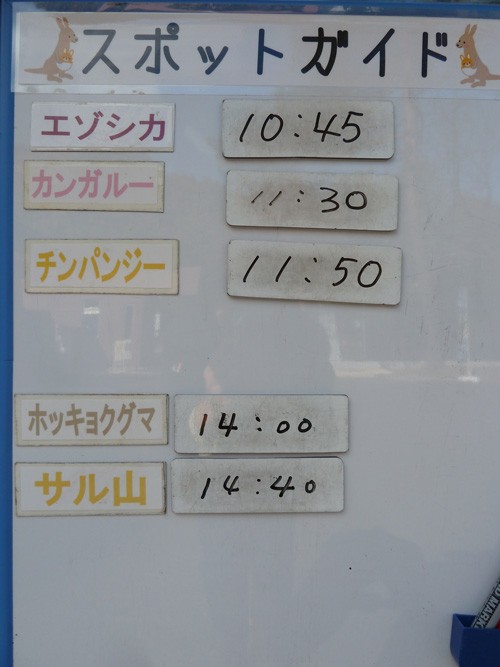 スポットガイド
エゾシカ 10:45
カンガルー 11:30
チンパンジー 11:50
ホッキョクグマ 14:00
サル山 14:40